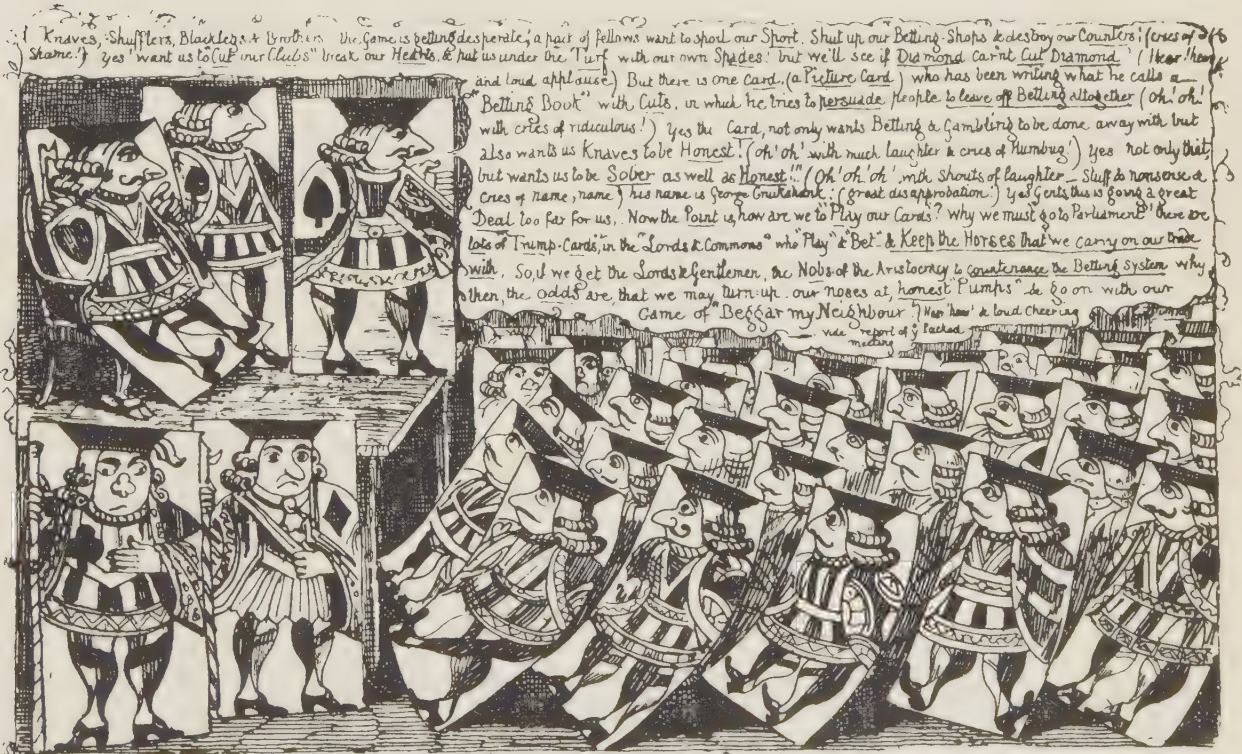 Knaves, Shufflers, Blacklegs & Brothers the Game is getting desperate; a pair of fellows want to spoil our Sport. Shut up our Betting-Shops & destroy our Counters! (cries of
Shame!) Yes want us to "Cut our Clubs" break our Hearts, & put us under the Turf with our own Spades! but we'll see if Diamond can't Cut Diamond! (Hear! hear
and loud applause.) But there is one Card. (a Picture Card) who has been writing what he calls a
"Betting Book" with Cuts, in which he tries to persuade people to leave off Betting altogether (Oh! oh!
with cries of ridiculous!) Yes this Card, not only wants Betting & Gambling to be done away with but
also wants us Knaves to be Honest! (oh! oh! with much laughter & cries of Humbug!) Yes not only that
but wants us to be Sober as well as Honest!! (Oh! oh! oh! with Shouts of laughter – Stuff & nonsense &
cries of name, name) his name is George Cruikshank! (great disapprobation!) Yes Gents this is going a great
Deal too far for us. Now the Point is, how are we to Play our Cards? Why we must go to Parliament! there are
lots of "Trump-Cards," in the "Lords & Commons" who "Play" & "Bet" & Keep the Horses that we carry on our trade
with. So, if we get the Lords & Gentlemen, the Nobs of the Aristocracy to countenance the Betting System why
then, the odds are, that we may turn-up our noses at, honest "Pumps" & go on with our
Game of "Beggar my Neighbour! (Hear 'hear' & loud Cheering
vide report of packed
meeting